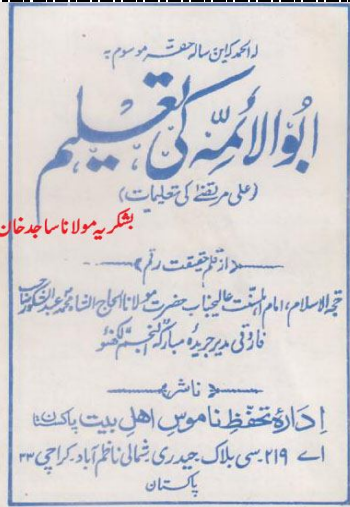 لہ الحمد کہ این رسالہ حقہ موسوم بہ
ابو الائمہ کی تعلیم
(علی مرتضےٰ کی تعلیمات)
بشکریہ مولانا ساجد خان
از قلم حقیقت رقم
حجۃ الاسلام، امام اہلسنت عالیجناب حضرت مولانا الحاج الشاہ محمد عبد الشکور صاحب
فاروقی مدیر جریدہ مبارکہ النجم لکھنؤ
ناشر
ادارہ تحفظ ناموس اہل بیت پاکستان
اے ۲۱۹۔سی بلاک۔حیدری شمالی ناظم آباد۔کراچی ۳۳
پاکستان